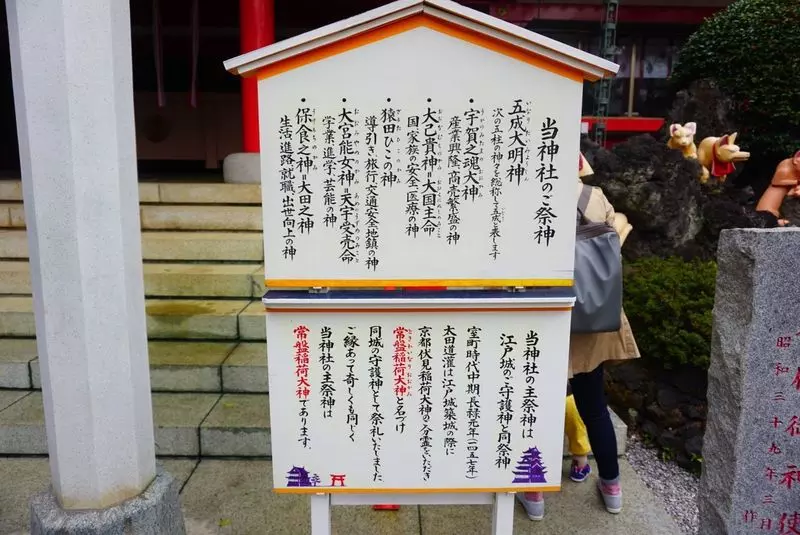 当神社のご祭神
五成大明神
次の五柱の神々を総称して五成と表します
・宇賀之魂大神
産業興隆、商売繁盛の神
・大己貴神=大国主命
国家、家族の安全、医療の神
・猿田ひこの神
導引き、旅行、交通安全、地鎮の神
・大宮能女神=天宇受売命
学業、進学、芸能の神
・保食之神=大田之神
生活、進路、就職、出世向上の神
当神社の主祭神は
江戸城のご守護神と同祭神
室町時代中期、長禄元年(一四五七年)
太田道灌は江戸城築城の際に
京都伏見稲荷大神の分霊をいただき
常盤稲荷大神と名づけ
同城の守護神として祭礼いたしました
ご縁あって奇しくも同じく
当神社の主祭神は
常盤稲荷大神であります.
昭和三十九年三月